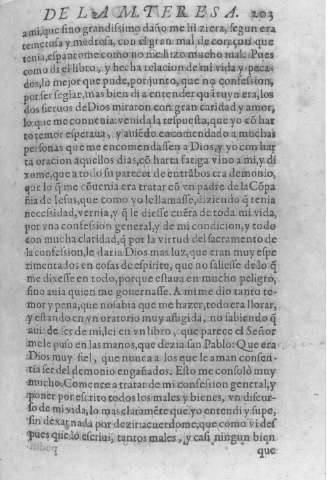 DE LA M. TERESA. 203
a mi, que sino grandissimo daño me hiziera, segun era
temerosa y medrosa, con el gran mal de coraçon que
tenia, espantome como no me hizo mucho mal. Pues
como di el libro, y hecha relacion de mi vida y peca-
dos, lo mejor que pude, por junto, que no confession,
por ser seglar, mas bien di a entender quã ruyn era, los
dos sieruos de Dios miraron con gran caridad y amor,
lo que me conuenia: venida la respuesta, que yo cõ har
to temor esperaua, y auiẽdo encomendado a muchas
personas que me encomendassen a Dios, y yo con har
ta oracion aquellos dias, cõ harta fatiga vino a mi, y di
xome, que a todo su parecer de entrãbos era demonio,
que lo q̃ me cõuenia era tratar cõ vn padre de la Cõpa
ñia de Iesus, que como yo le llamasse, diziendo q̃ tenia
necessidad, vernia, y q̃ le diesse cuẽta de toda mi vida,
por vna confession general, y de mi condicion, y todo
con mucha claridad, q̃ por la virtud del sacramento de
la confession, le daria Dios mas luz, que eran muy espe
rimentados en cosas de espiritu, que no saliesse de lo q̃
me dixesse en todo, porque estaua en mucho peligro,
sino auia quien me gouernasse. A mi me dio tanto te-
mor y pena, que no sabia que me hazer, todo era llorar,
y estando en vn oratorio muy afligida, no sabiendo q̃
auia de ser de mi, lei en vn libro, que parece el Señor
me le puso en las manos, que dezia san Pablo: Que era
Dios muy fiel, que nunca a los que le aman consen-
tia ser del demonio engañados. Esto me consolò muy
mucho. Comence a tratar de mi confession general, y
poner por escrito todos los males y bienes, vn discur-
so de mi vida, lo mas claramẽte que yo entendi y supe,
sin dexar nada por dezir: acuerdome, que como vi des
pues que lo escriui, tantos males, y casi ningun bien
que